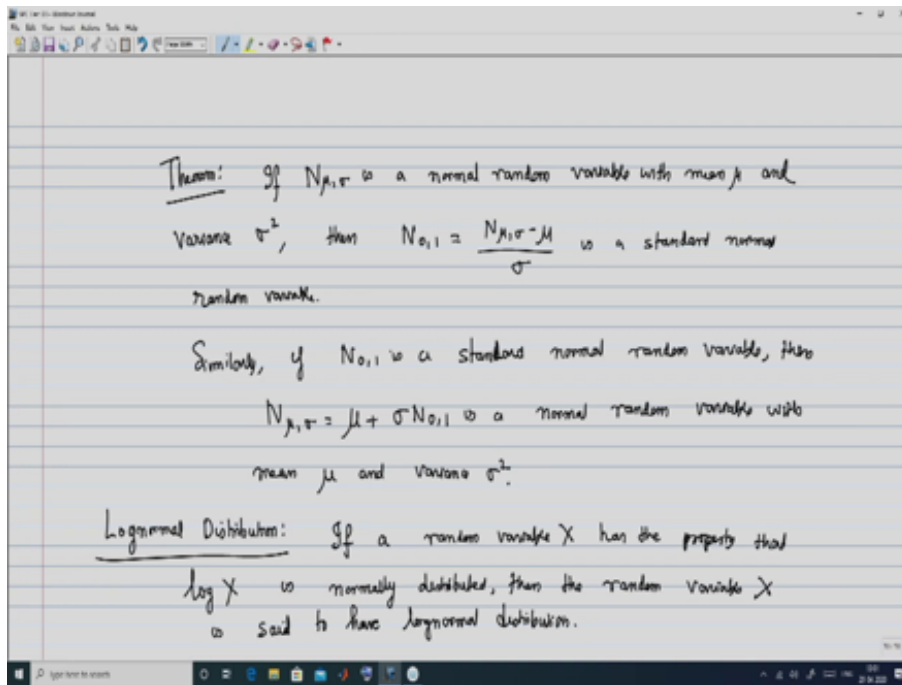 File Edit View Insert Actions Tools Help
Theorem: If N_{μ,σ} is a normal random variable with mean μ and
variance σ², then N_{0,1} = (N_{μ,σ} - μ)/σ is a standard normal
random variable.
Similarly, if N_{0,1} is a standard normal random variable, then
N_{μ,σ} = μ + σN_{0,1} is a normal random variable with
mean μ and variance σ².
Lognormal Distribution: If a random variable X has the property that
log X is normally distributed, then the random variable X
is said to have lognormal distribution.
Type here to search